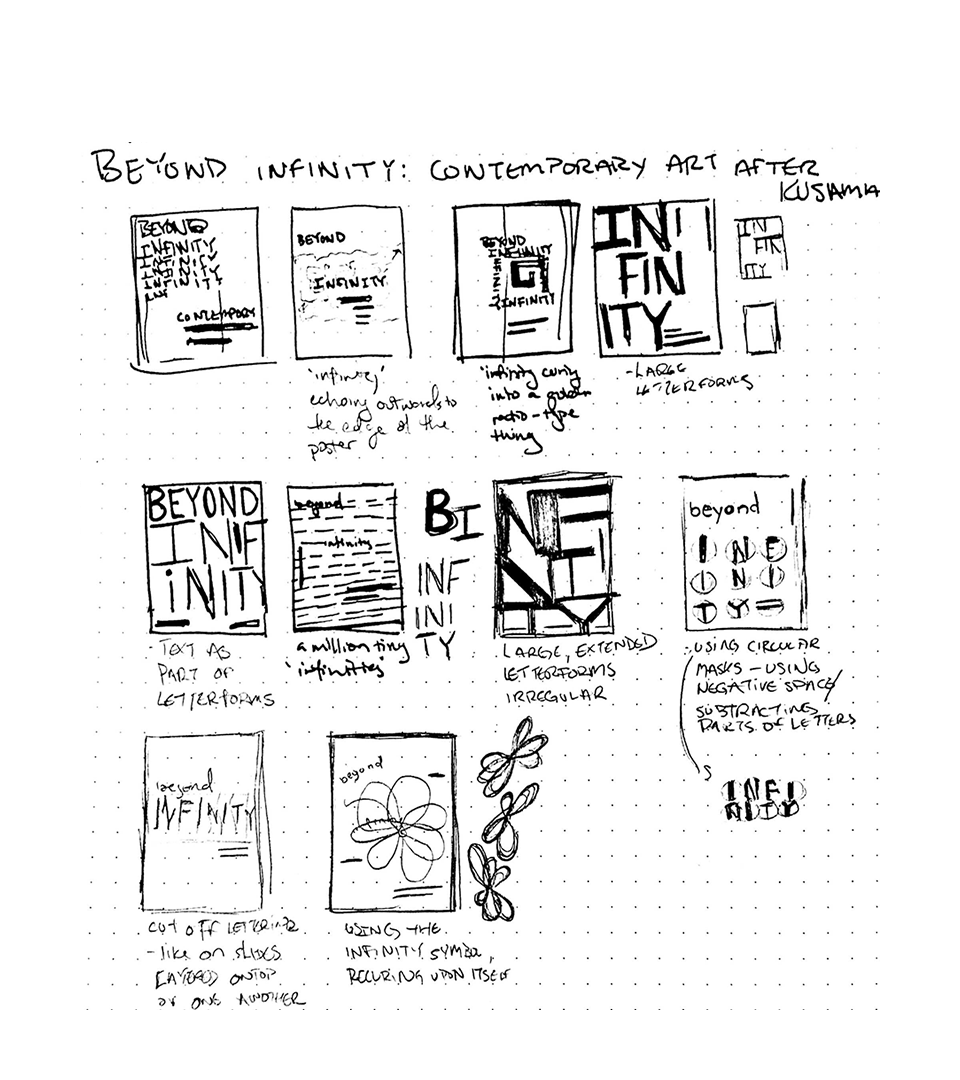 BEYOND INFINITY: CONTEMPORARY ART AFTER
KUSAMA
BEYOND
INFINITY
INFINITY
INFINITY
INFINITY
INF
CONTEMPORARY
BEYOND
INFINITY
'infinity'
echoing outwards to
the edge of the
poster
BEYOND
INFINITY
INFINITY
'infinity curling
into a golden
ratio-type
thing
IN
FIN
ITY
- LARGE
LETTERFORMS
IN
FIN
ITY
BEYOND
INF
INITY
- TEXT AS
PART OF
LETTERFORMS
beyond
infinity
a million tiny
'infinities'
BI
INF
INI
TY
INF
INI
TY
LARGE, EXTENDED
LETTERFORMS
IRREGULAR
beyond
INF
INI
TY
- USING CIRCULAR
MASKS - USING
NEGATIVE SPACE/
SUBTRACTING
PARTS OF LETTERS
INFI
NITY
beyond
INFINITY
CUT OFF LETTERING
- like on SLIDES
LAYERED ONTOP
OF ONE ANOTHER
beyond
USING THE
INFINITY SYMBOL,
RECURING UPON ITSELF